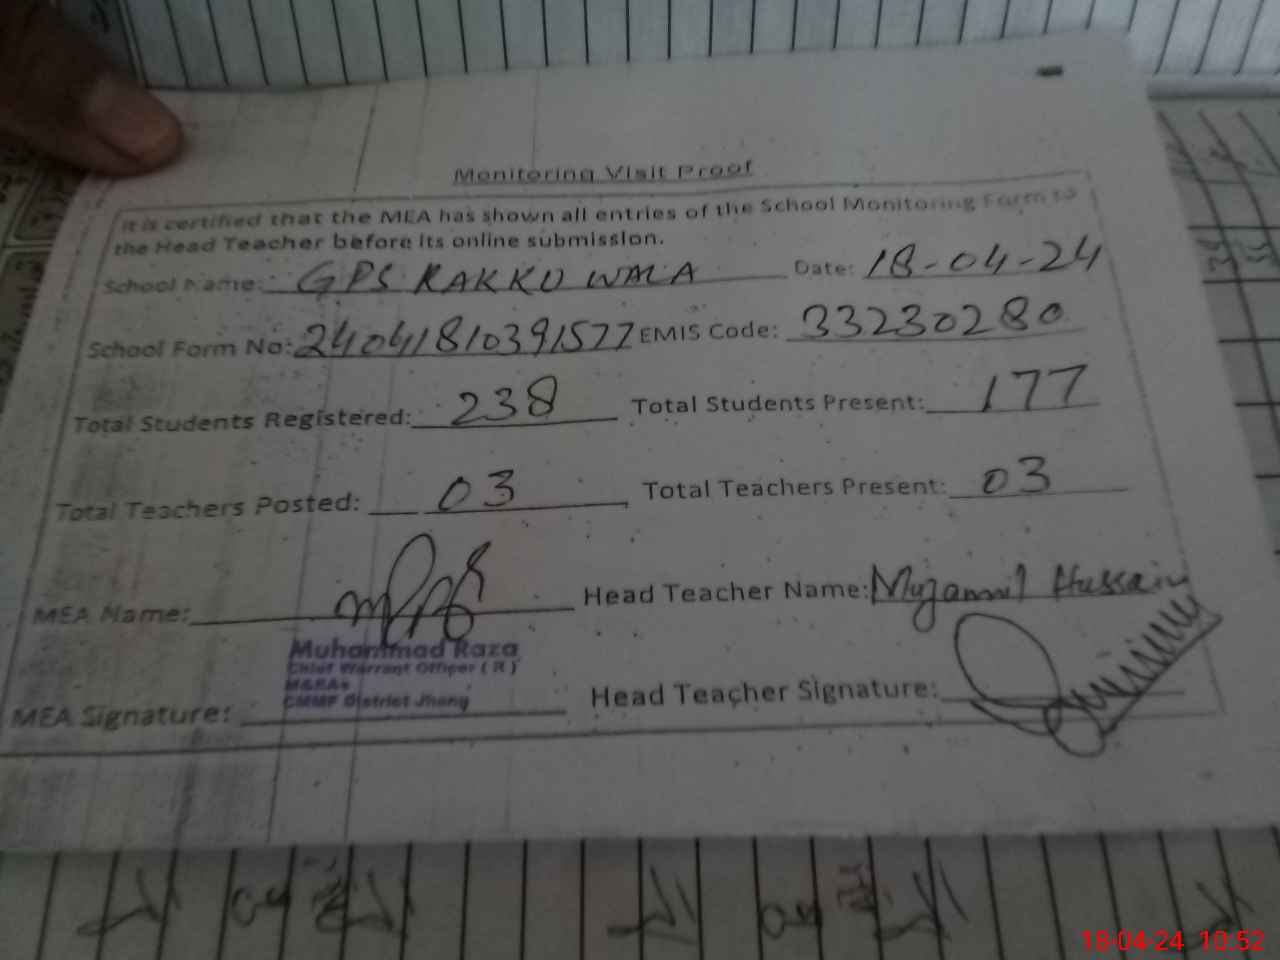 Monitoring Visit Proof
It is certified that the MEA has shown all entries of the School Monitoring Form to
the Head Teacher before its online submission.
School Name: GPS RAKKU WALA Date: 18-04-24
School Form No: 24041810391577 EMIS Code: 33230280
Total Students Registered: 238 Total Students Present: 177
Total Teachers Posted: 03 Total Teachers Present: 03
MEA Name: Head Teacher Name: Muzammil Hussain
Muhammad Raza
Chief Warrant Officer ( R )
M&EAs
CMMF District Jhang
MEA Signature: Head Teacher Signature:
18-04-24 10:52